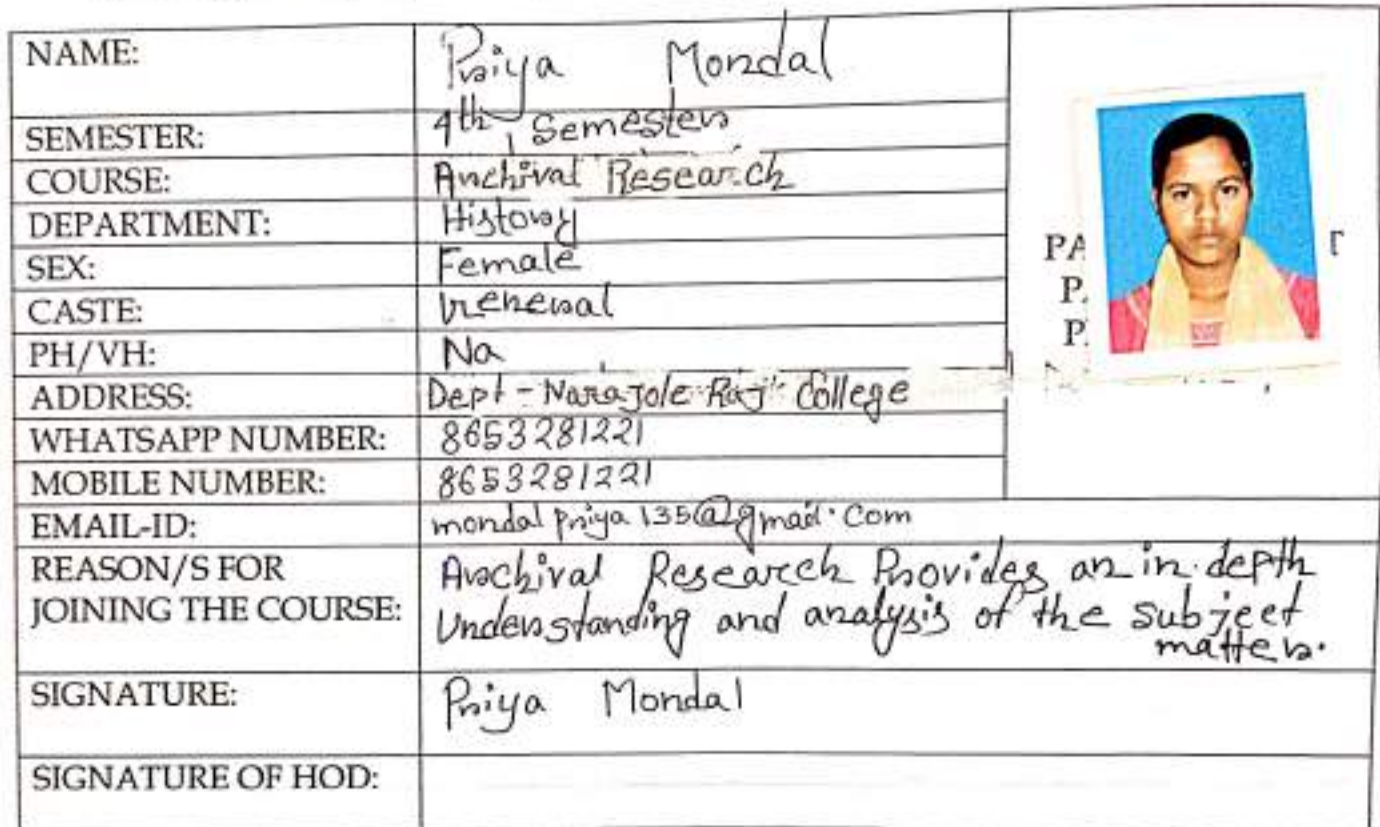 NAME: Priya Mondal
SEMESTER: 4th Semester
COURSE: Archival Research
DEPARTMENT: History
SEX: Female
CASTE: General
PH/VH: No
PA
P
P
ADDRESS: Dept - Narajole Raj College
WHATSAPP NUMBER: 8653281221
MOBILE NUMBER: 8653281221
EMAIL-ID: mondalpriya135@gmail.com
REASON/S FOR JOINING THE COURSE:
Archival Research Provides an in-depth
Understanding and analysis of the subject
matter.
SIGNATURE: Priya Mondal
SIGNATURE OF HOD: